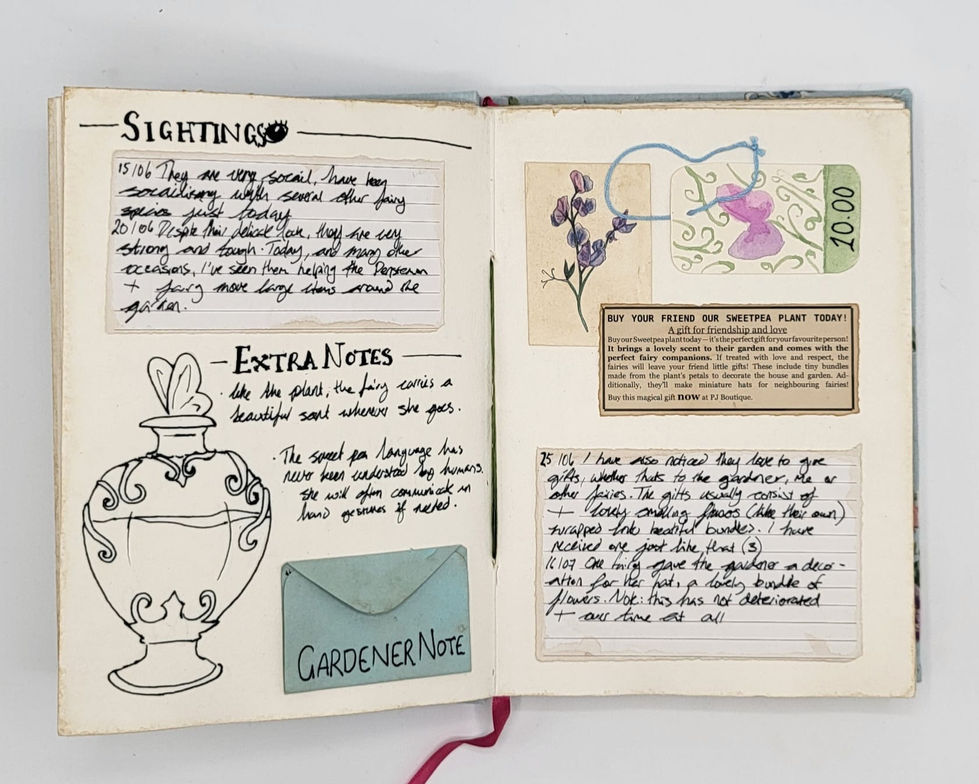 SIGHTINGS
15/06 They are very socail, have been
socailising with several other fairy
species just today
20/06 Despite their delicate look, they are very
strong and tough. Today, and many other
occasions, I've seen them helping the
+ fairy move large items around the
garden.
EXTRA NOTES
· like the plant, the fairy carries a
beautiful scent wherever she goes.
· The sweet pea language has
never been understood by humans.
she will often communicate in
hand gestures if needed.
GARDENER NOTE
10.00
BUY YOUR FRIEND OUR SWEETPEA PLANT TODAY!
A gift for friendship and love
Buy our Sweetpea plant today – it's the perfect gift for your favourite person!
It brings a lovely scent to their garden and comes with the
perfect fairy companions. If treated with love and respect, the
fairies will leave your friend little gifts! These include tiny bundles
made from the plant's petals to decorate the house and garden. Ad-
ditionally, they'll make miniature hats for neighbouring fairies!
Buy this magical gift now at PJ Boutique.
25/06 I have also noticed they love to give
gifts, whether thats to the gardener, me or
other fairies. The gifts usually consist of
+ lovely smelling flowers (like their own)
wrapped into beatiful bundles. I have
received one just like that (3)
16/07 One fairy gave the gardener a decor-
ation for her hat, a lovely bundle of
flowers. Note: this has not deteriorated
+ over time at all